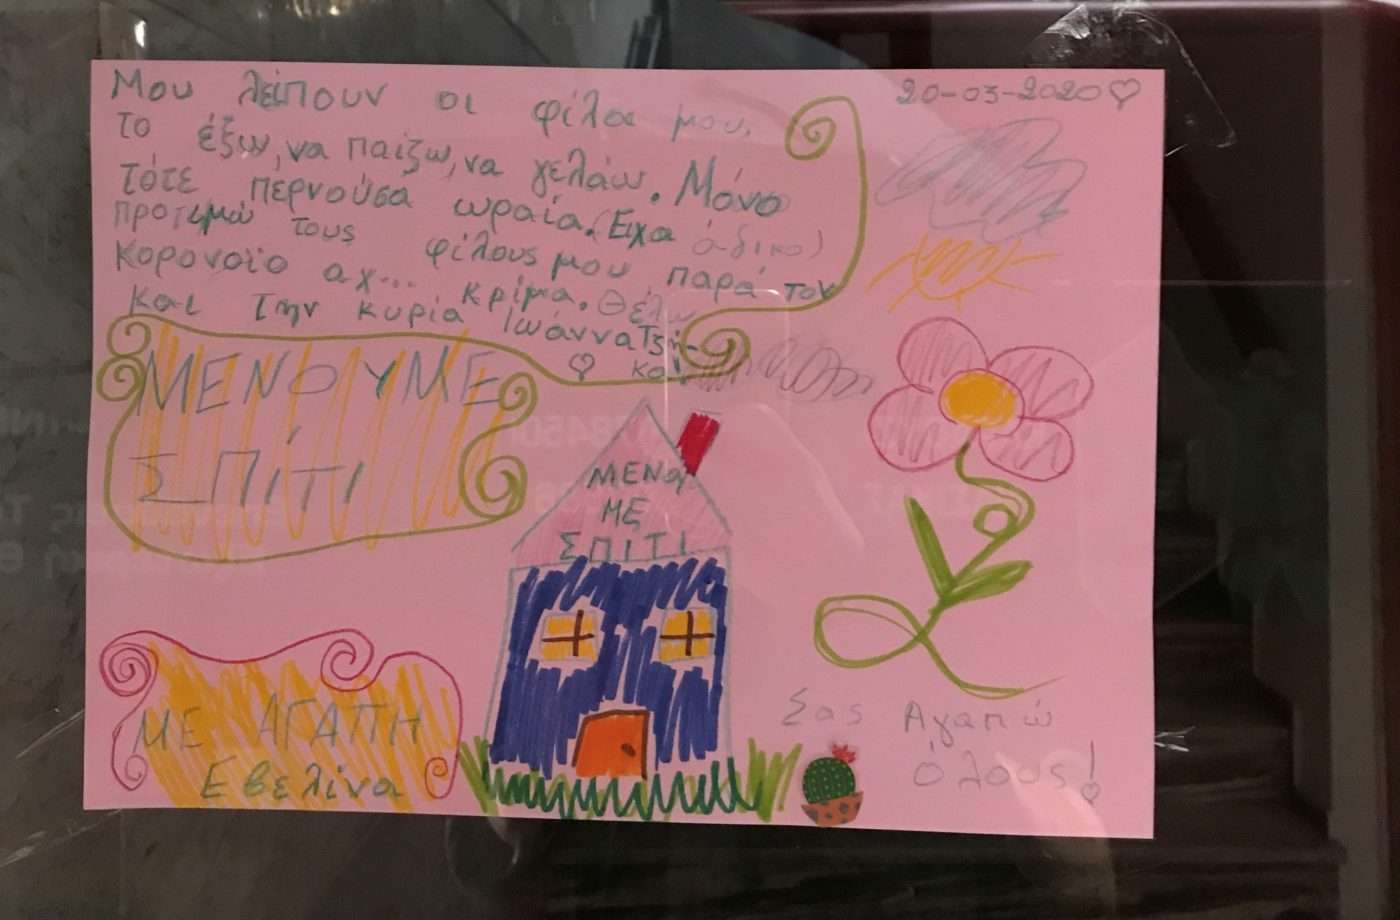 Μου λείπουν οι φίλοι μου,
το έξω, να παίζω, να γελάω. Μόνο
τότε περνούσα ωραία. (Είχα άδικο)
προτειμώ τους φίλους μου παρά τον
κορονοϊο αχ... κρίμα. Θέλω
και την κυρία Ιωάννα Τζη
20-03-2020
ΜΕΝΟΥΜΕ
ΣΠΙΤΙ
ΜΕΝΟΥ
ΜΕ
ΣΠΙΤΙ
ΜΕ ΑΓΑΠΗ
Εβελίνα
Σας Αγαπώ
όλους!